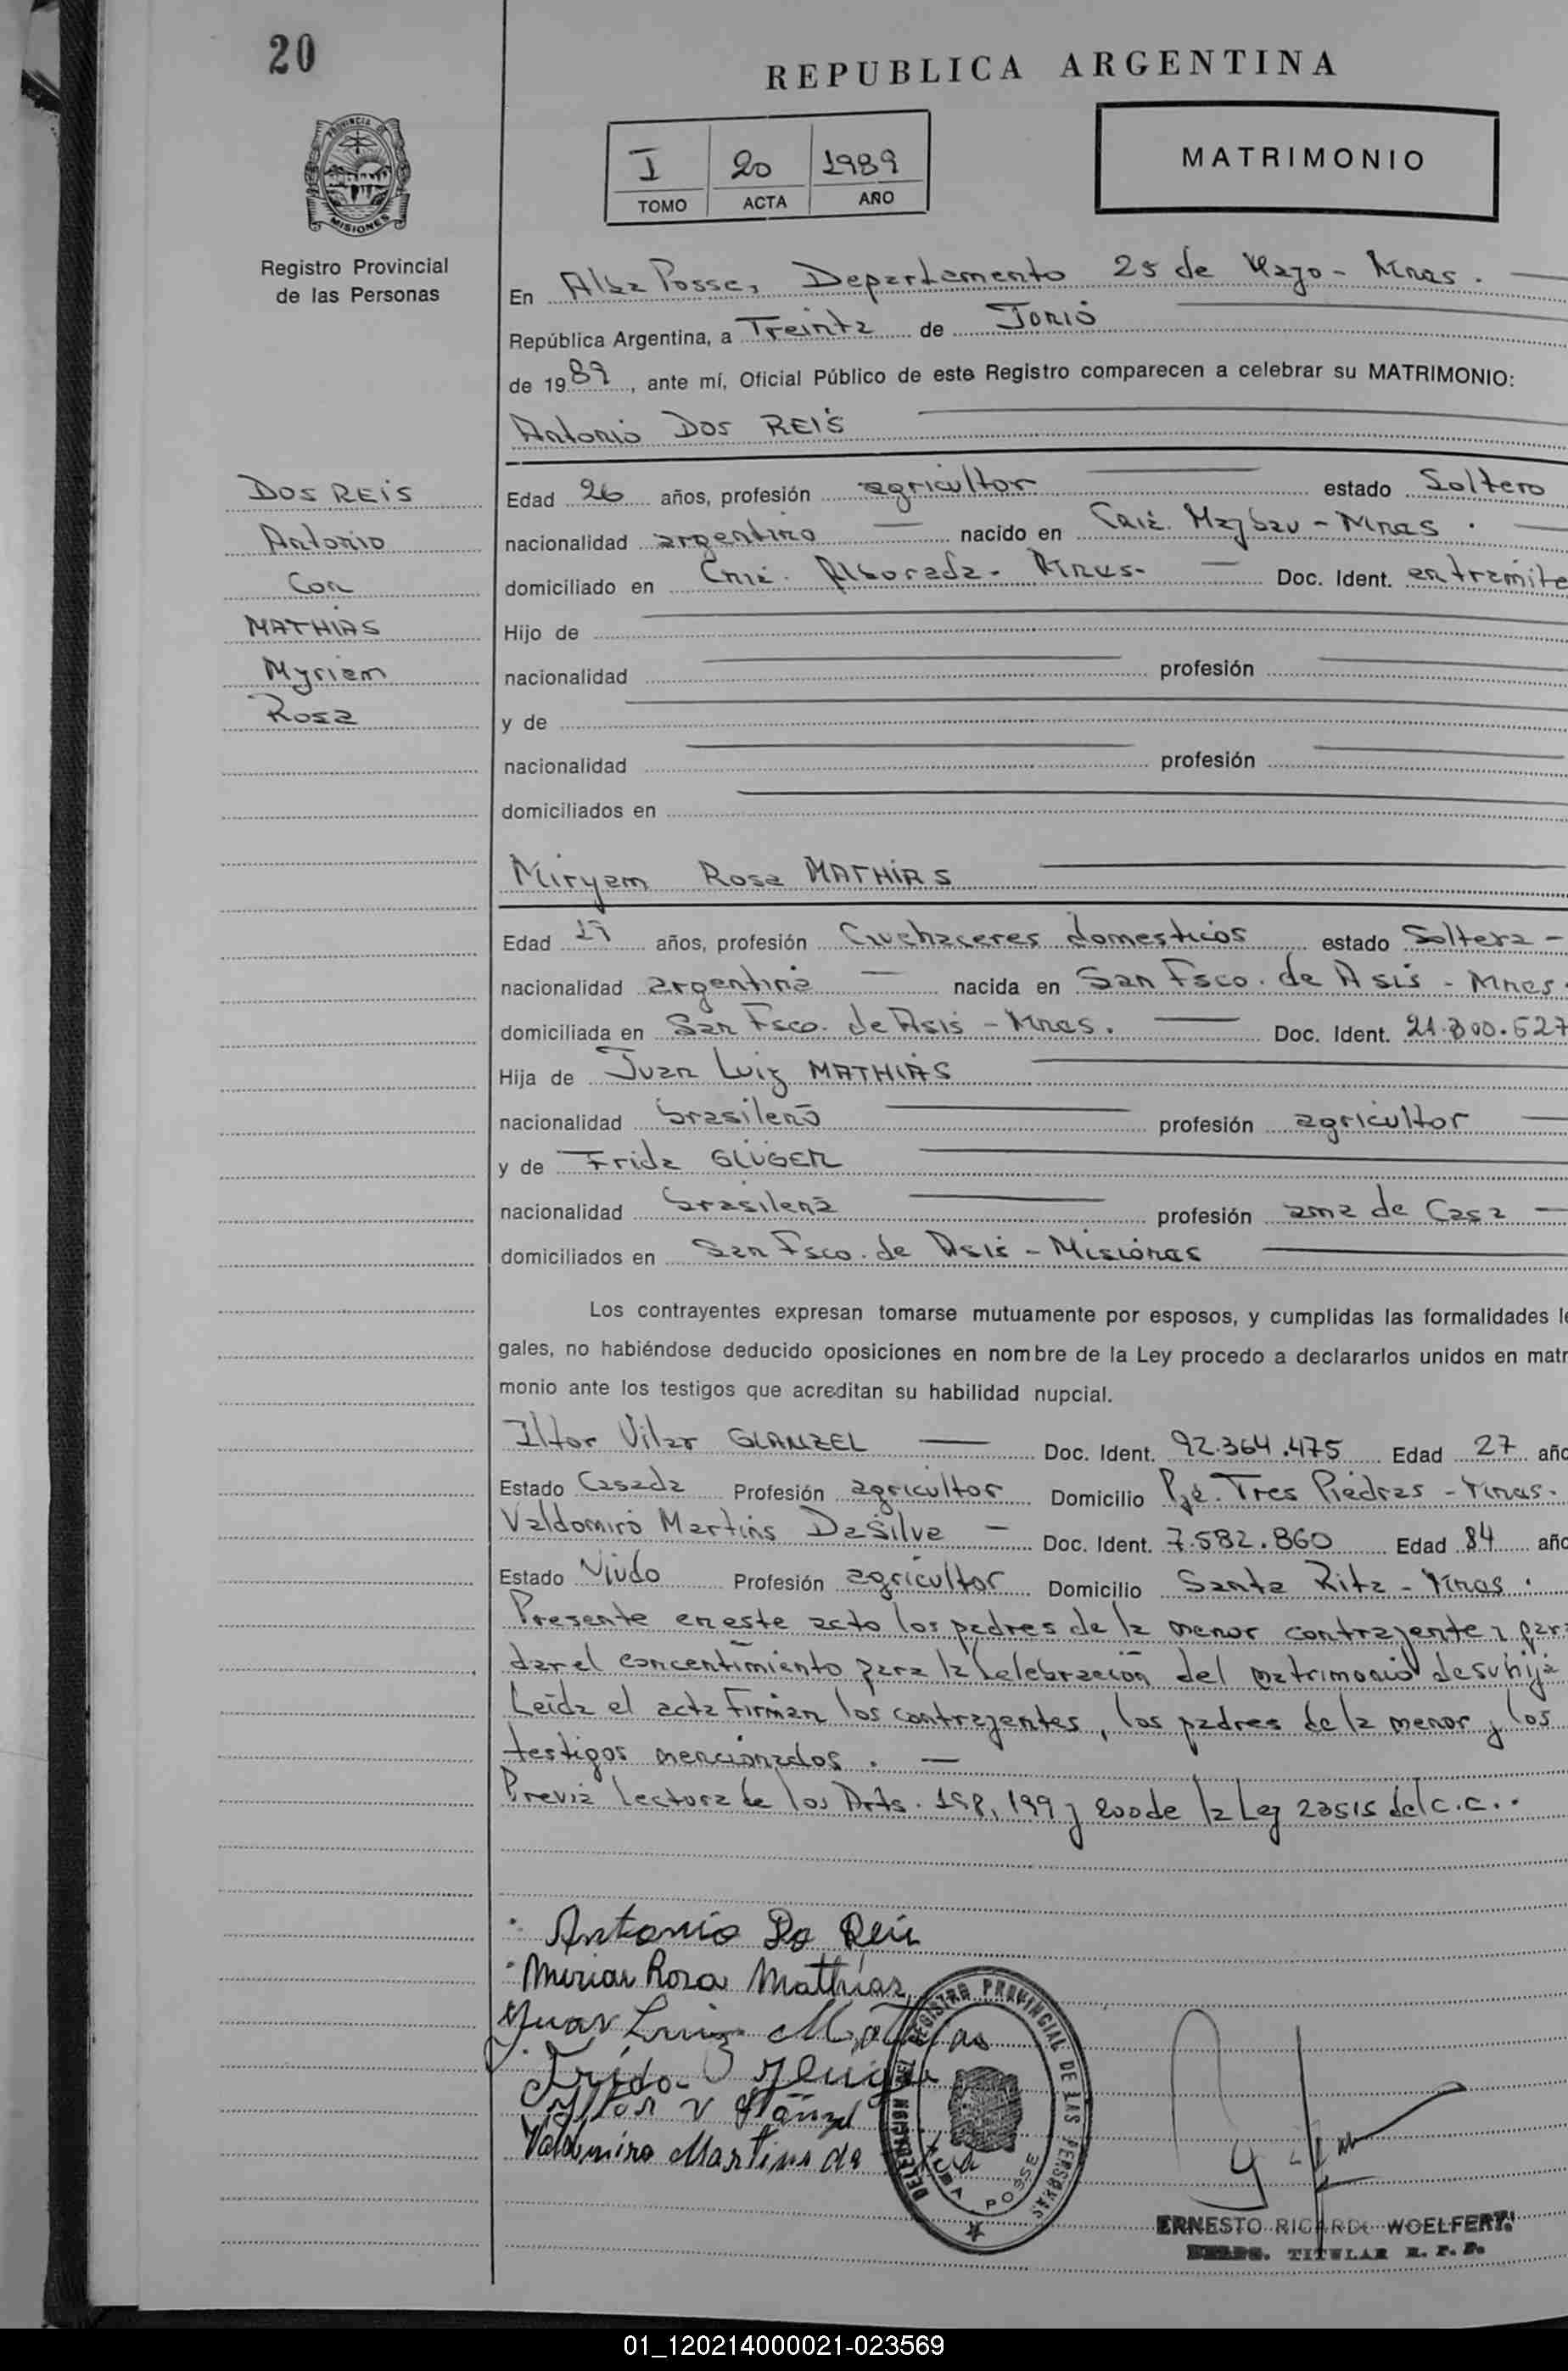 20
REPUBLICA ARGENTINA
PROVINCIA DE
MISIONES
I 20 1989
TOMO ACTA AÑO
MATRIMONIO
Registro Provincial
de las Personas
En Alba Posse, Departamento 25 de Mayo - Mnes.
República Argentina, a Treinta de Junio
de 1989, ante mí, Oficial Público de este Registro comparecen a celebrar su MATRIMONIO:
Antonio DOS REIS
DOS REIS
Antonio
Con
MATHIAS
Myriam
Rosa
Edad 26 años, profesión agricultor estado Soltero
nacionalidad argentino nacido en Mnes.
domiciliado en Alborada - Mnes - Doc. Ident. en tramite
Hijo de
nacionalidad profesión
y de
nacionalidad profesión
domiciliados en
Miryam Rosa MATHIAS
Edad años, profesión Quehaceres domesticos estado Soltera -
nacionalidad argentina nacida en San Fsco. de Asis - Mnes.
domiciliada en San Fsco. de Asis - Mnes. Doc. Ident. 21.300.527
Hija de Juan Luiz MATHIAS
nacionalidad brasileño profesión agricultor
y de Frida GLUGER
nacionalidad brasileña profesión ama de Casa
domiciliados en San Fsco. de Asis - Misiones
Los contrayentes expresan tomarse mutuamente por esposos, y cumplidas las formalidades le
gales, no habiéndose deducido oposiciones en nombre de la Ley procedo a declararlos unidos en matr
monio ante los testigos que acreditan su habilidad nupcial.
Iltor Vilar GLANZEL Doc. Ident. 92.364.475 Edad 27 año
Estado Casada Profesión agricultor Domicilio Pje. Tres Piedras - Mnes.
Valdomiro Martins DaSilva - Doc. Ident. 7.582.860 Edad 84 año
Estado Viudo Profesión agricultor Domicilio Santa Rita - Mnes.
Presente en este acto los padres de la menor contrayente, par
dar el concentimiento para la Celebración del matrimonio de su hija
Leida el acta Firman los contrayentes, los padres de la menor y los
testigos mencionados. -
Previa lectura de los Arts. 198, 199 y 200 de la Ley 23515 del c.c..
Antonio Do Reis
Mirian Rosa Mathias
Juan Luiz Mathias
Frida Gluger
Iltor V Glänzel
Valdomiro Martins da Silva
DELEGACION DEL REGISTRO PROVINCIAL DE LAS PERSONAS
ALBA POSSE
ERNESTO RICARDO WOELFERT
TITULAR R. P. P.
01_120214000021-023569